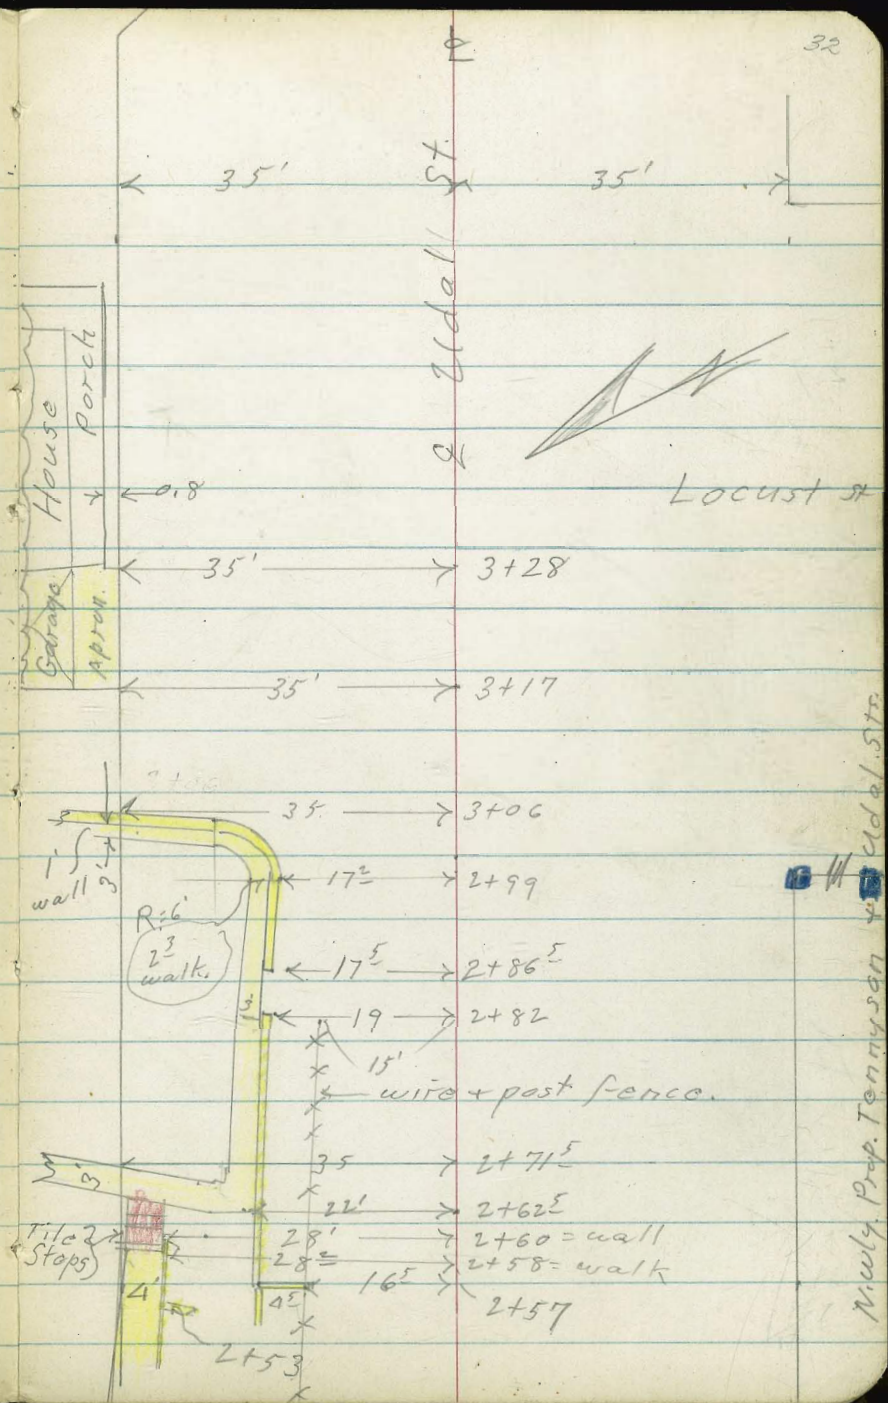 32
35'
35'
℄ Udall St.
House
Porch
0.8
Locust St
35'
3+28
Garage
Apron.
35'
3+17
35
3+06
1'
wall
3'
17²
2+99
R=6'
2³
walk.
17⁵
2+86⁵
19
2+82
15'
wire + post fence.
3'
35
2+71⁵
22'
2+62⁵
Tile
Steps
28'
2+60 = wall
28²
2+58 = walk
4'
4⁵
16⁵
2+57
2+53
N.W'ly. Prop. Tennyson + Udal. Sts.